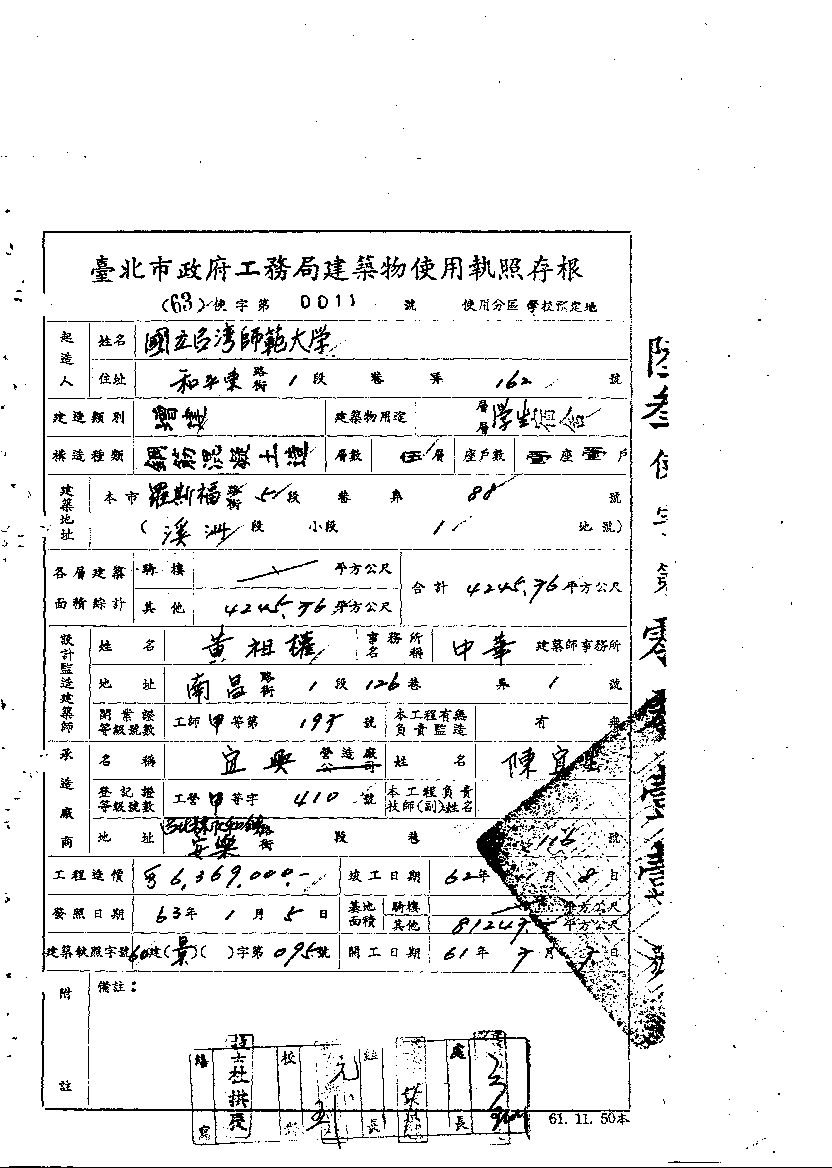 臺北市政府工務局建築物使用執照存根
(63)使字第 0011 號 使用分區 學校預定地
起造人 姓名 國立台湾師範大学
住址 和平東 路街 1 段 巷 弄 162 號
建造類別 增建 建築物用途 層層 学生宿舍
構造種類 鋼筋混凝土造 層數 伍 層 座戶數 壹 座 壹 戶
建築地址 本市 羅斯福 路街 5 段 巷 弄 88 號
( 溪洲 段 小段 1 地號)
各層建築面積綜計 騎樓 平方公尺 合計 4245.76 平方公尺
其他 4245.76 平方公尺
設計監造建築師 姓名 黃祖權 事務所名稱 中華 建築師事務所
地址 南昌 路街 1 段 126 巷 弄 1 號
開業證等級號數 工師 甲 等第 號 本工程有無負責監造 有
承造廠商 名稱 宜興 營造廠公司 姓名 陳宜
登記證等級號數 工營 甲 等字 410 號 本工程負責技師(副)姓名
地址 安樂 路街 段 巷 116 號
工程造價 6,369,000.- 竣工日期 62 年 月 8 日
發照日期 63 年 1 月 5 日 基地面積 騎樓 平方公尺
其他 平方公尺
建築執照字號 60 建(景)( )字第 095 號 開工日期 61 年 月 日
附註 備註：
繕寫 技士杜拱辰 校對 組長 處長
61. 11. 50本
陸叁使字第零